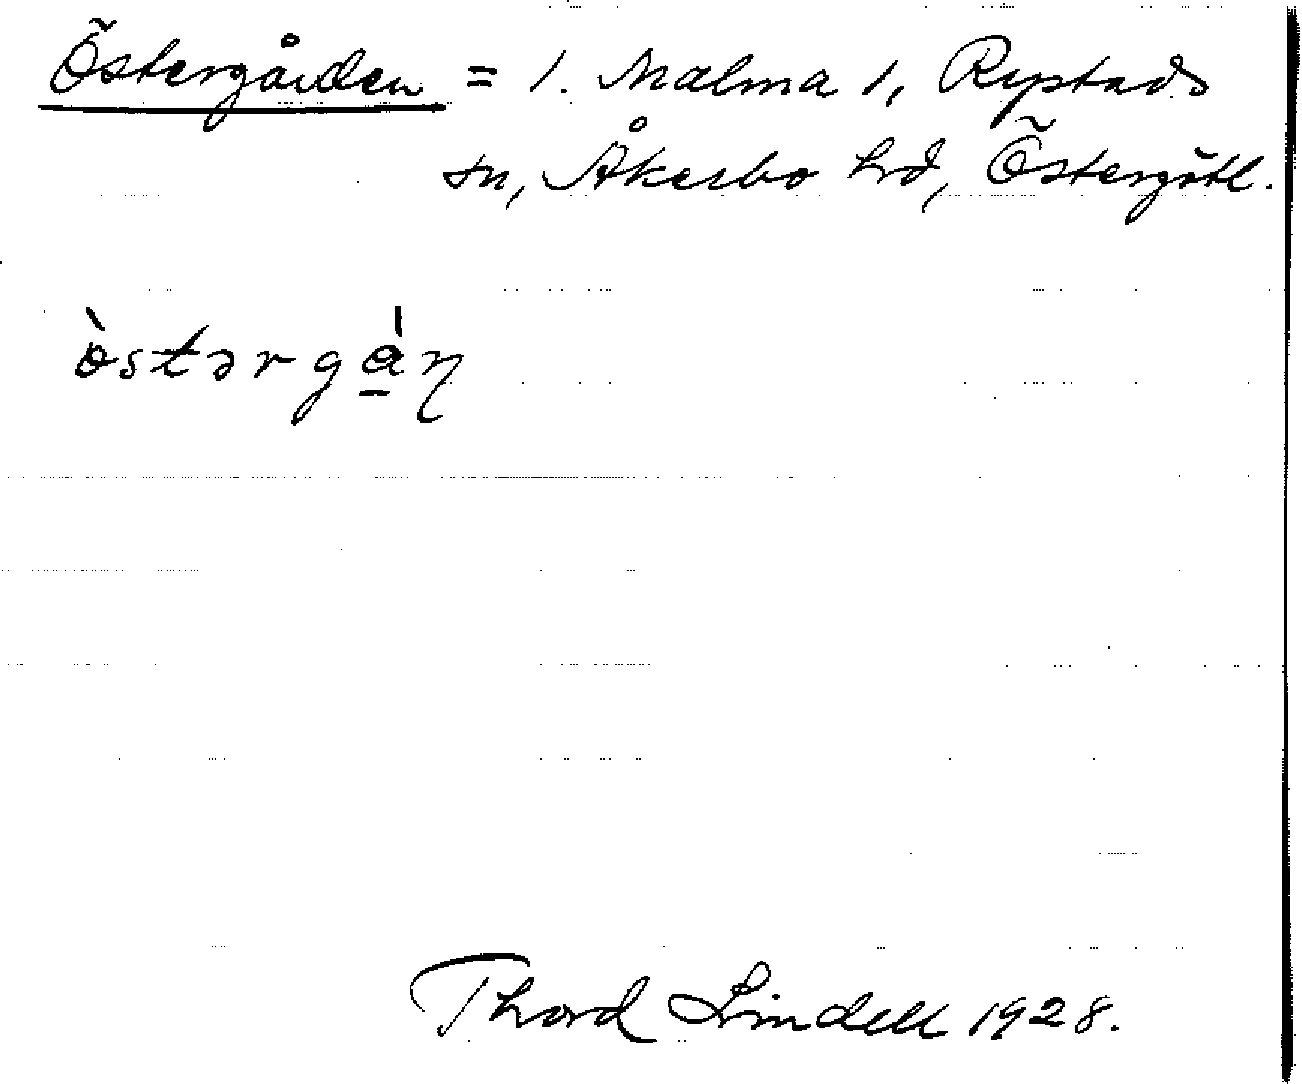 Östergården = 1. Malma 1, Rystads
sn, Åkerbo hd, Östergötl.
òstərga̱̍ɳ
Thord Lindell 1928.